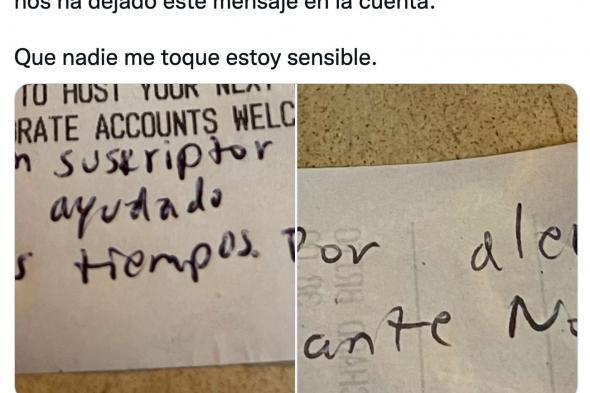 nos ha dejado este mensaje en la cuenta.
Que nadie me toque estoy sensible.
TO HOST YOUR NEXT
RATE ACCOUNTS WELC
n suskriptor
ayudado
s tiempos.
Por ale
ante N